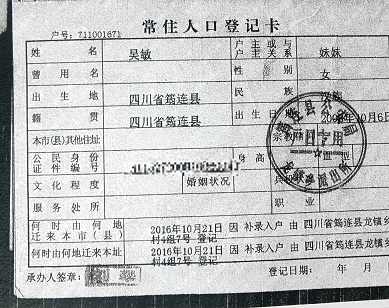 常住人口登记卡
户号:711001671
姓名 吴敏 户主或与户主关系 妹妹
曾用名 性别 女
出生地 四川省筠连县 民族 汉族
籍贯 四川省筠连县 出生日期 10月6
本市(县)其他住址 宗教
公民身份证件编号 身高
文化程度 婚姻状况 兵
服务处所 职业
何时由何地迁来本市(县) 2016年10月21日 因 补录入户 由 四川省筠连县龙镇乡
村4组7号 登记
何时由何地迁来本址 2016年10月21日 因 补录入户 由 四川省筠连县龙镇乡
村4组7号 登记
承办人签章: 登记日期: 年 月